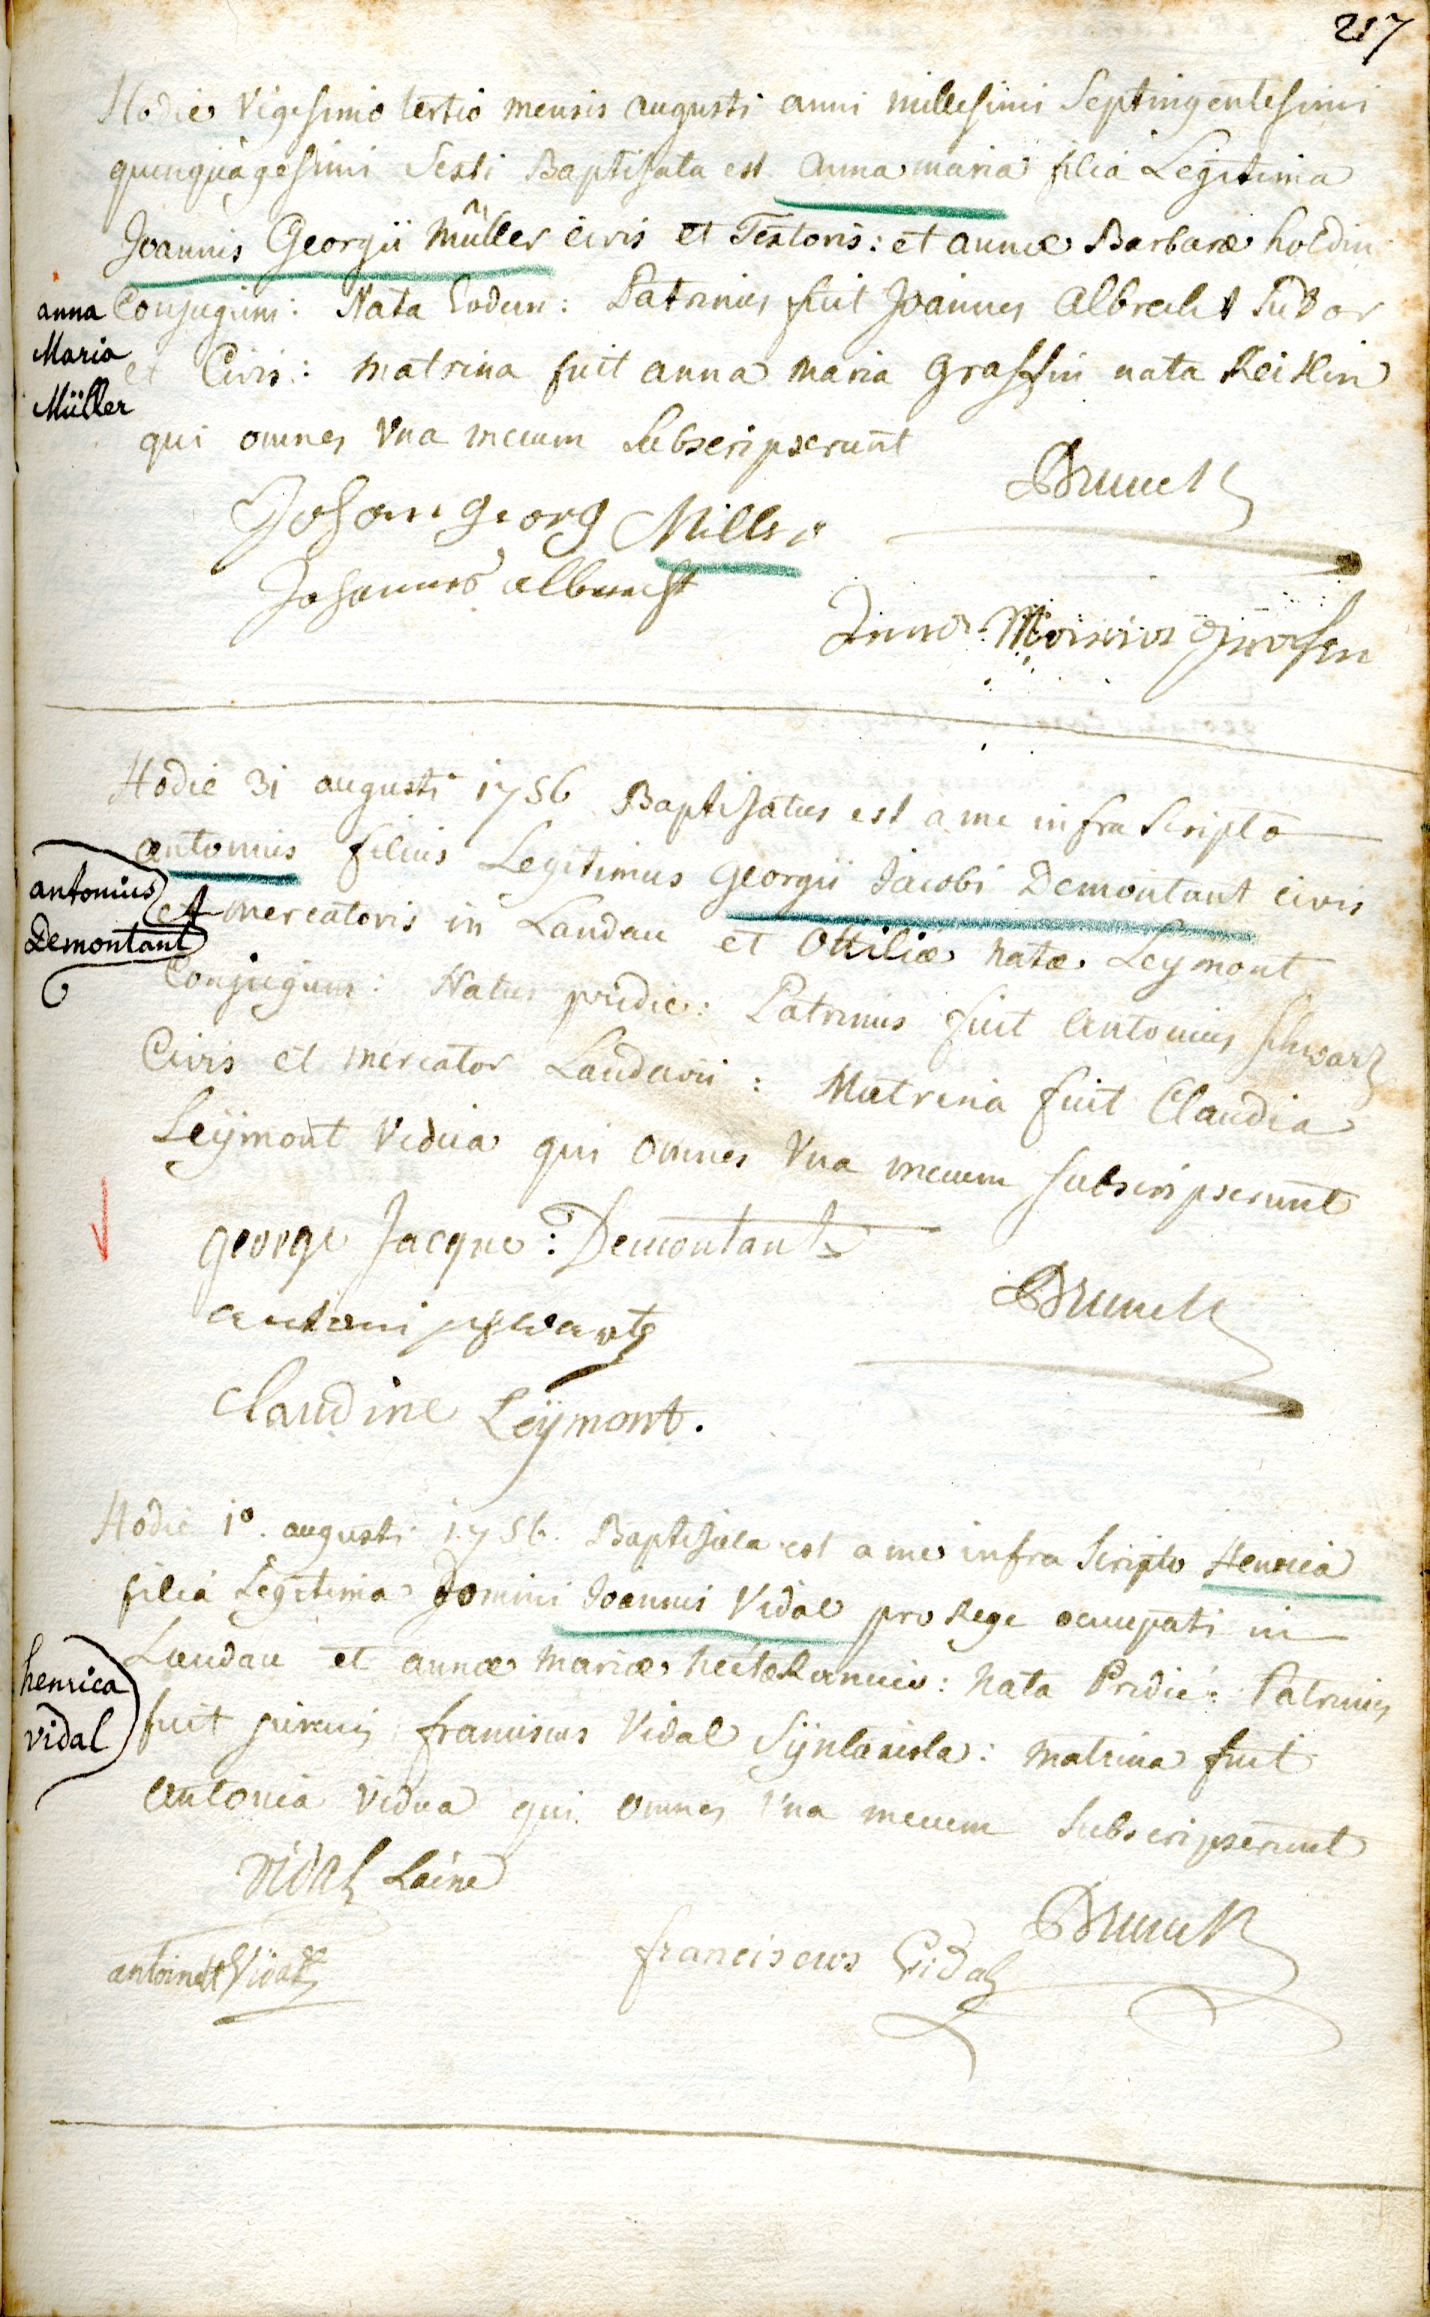 217
Hodie Vigesimo tertio mensis augusti anni millesimi Septingentesimi
quinquagesimi Sexti Baptisata est anna maria filia Legitima
Joannis Georgii Müller civis et Textoris: et annæ Barbaræ holdin
Conjugum: Nata Eodem: Patrinus fuit Joannes Albrecht Sutor
et Civis: matrina fuit anna maria Grassin nata
qui omnes Vna mecum Subscripserunt
anna
Maria
Müller
Brunck
Johan georg Miller
Johannes albrecht
Anna Maria
Hodie 31 augusti 1756 Baptisatus est a me infra Scripto
antonius filius Legitimus Georgii Jacobi Demontant civis
et mercatoris in Landau et Ottiliæ natæ Leymont
Conjugum: Natus pridie: Patrinus fuit Antonius Schwartz
Civis et mercator Landavii: Matrina fuit Claudia
Leÿmont Vidua qui omnes Vna mecum subscripserunt
antonius
Demontant
george Jacque: Demontant
Brunck
antoni schwartz
Claudine Leÿmont.
Hodie 1º. augusti 1756 Baptisata est a me infra Scripto Henrica
filia Legitima Domini Joannis Vidal pro Rege occupati in
Landau et annæ mariæ : Nata Pridie: Patrinus
fuit juvenis franciscus Vidal Sÿntaxista: matrina fuit
Antonia Vidua qui omnes Vna mecum Subscripserunt
henrica
vidal
Vidal Laine
Brunck
antoinett Vidal
franciscus Vidal